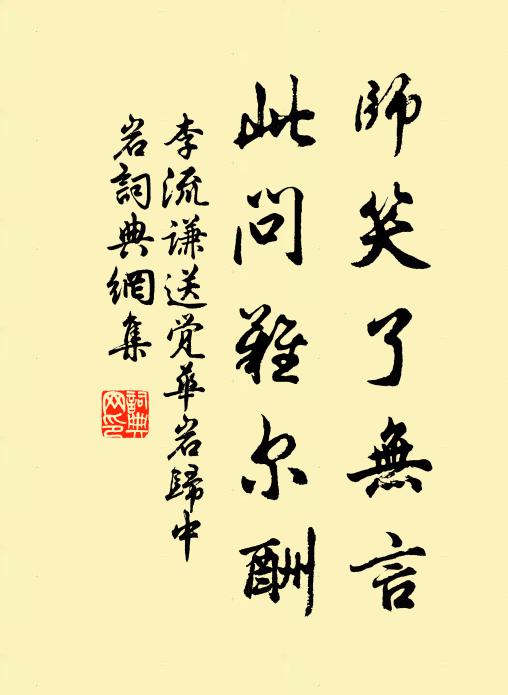 師笑了無言
此問難尔酬
李流謙送觉華岩歸中
岩詞典網集
詞典
网印